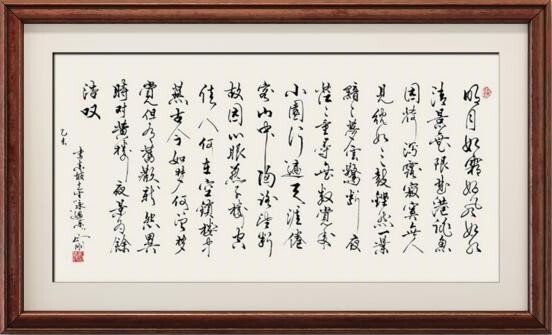 明月如霜好風如水
清景無限曲港跳魚
圓荷瀉露寂寞無人
見紞如三鼓鏗然一葉
黯黯夢雲驚斷夜
茫茫重尋無處覺來
小園行遍天涯倦
客山中歸路望斷
故園心眼燕子樓空
佳人何在空鎖樓中
燕古今如夢何曾夢
覺但有舊歡新怨異
時對黃樓夜景為餘
浩叹
乙未
書東坡永遇樂